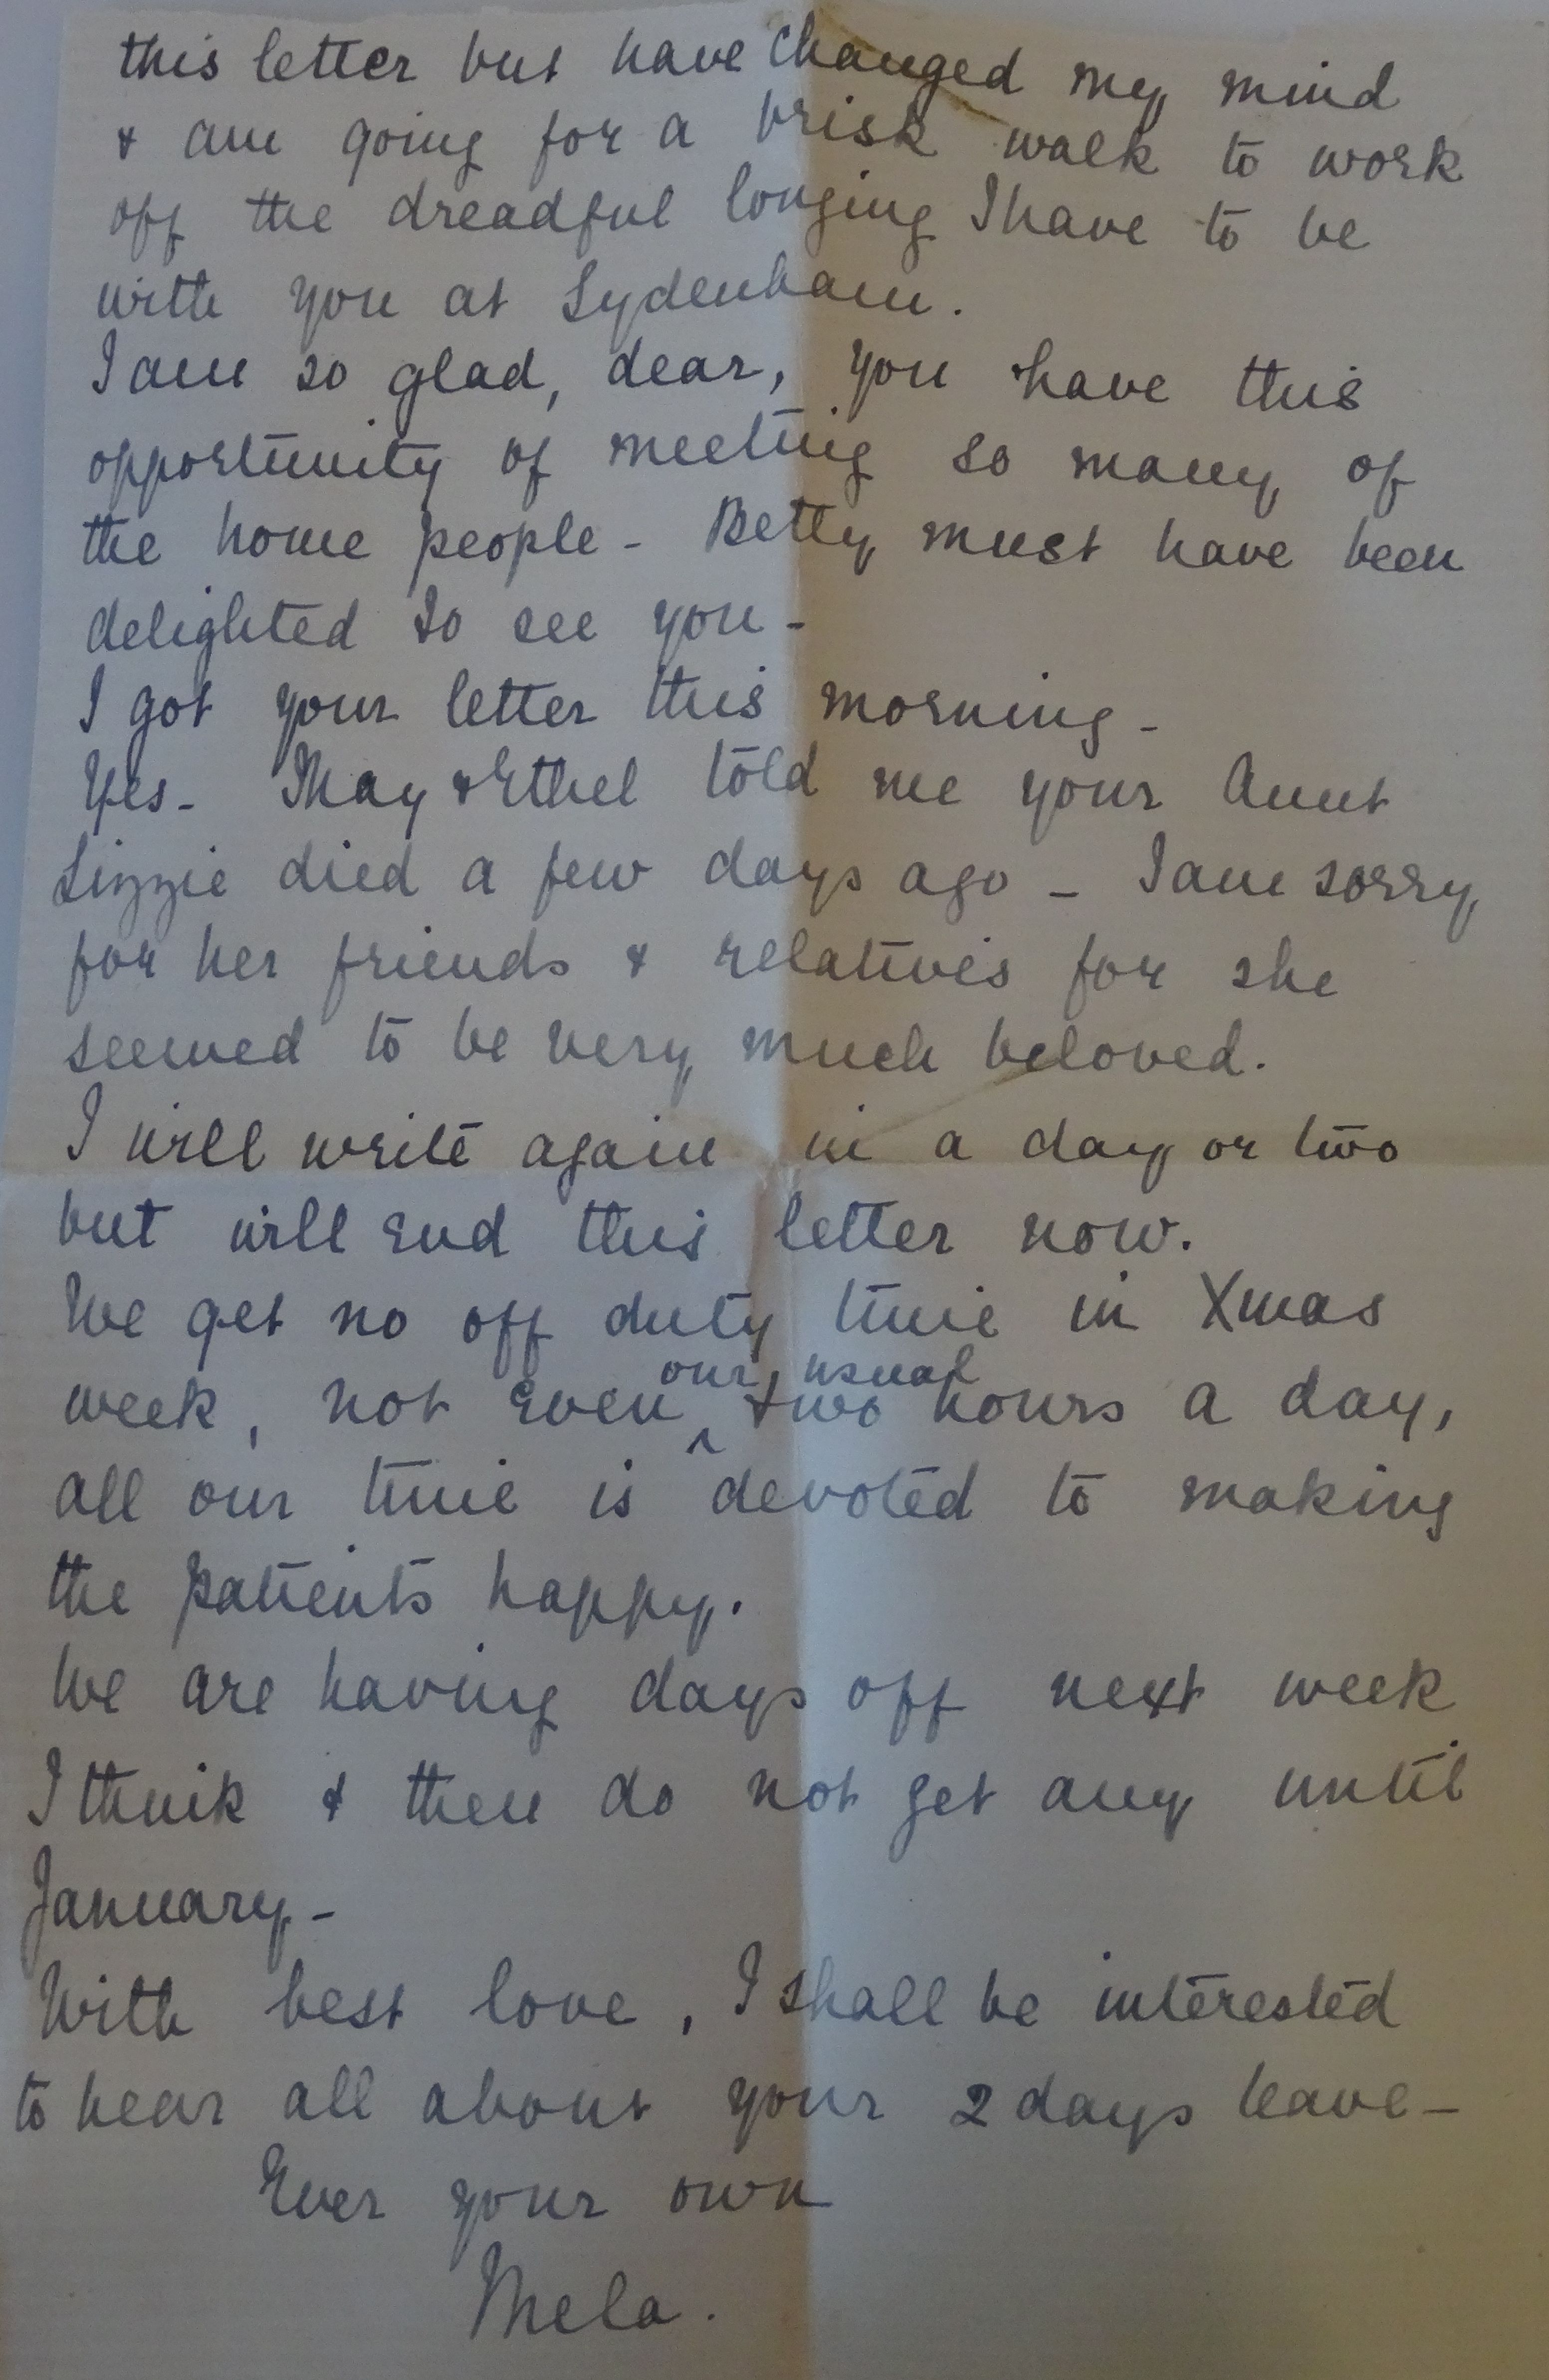 this letter but have changed my mind
& am going for a brisk walk to work
off the dreadful longing I have to be
with you at Sydenham.
I am so glad, dear, you have this
opportunity of meeting so many of
the home people - Betty must have been
delighted to see you -
I got your letter this morning -
Yes - May & Ethel told me your Aunt
Lizzie died a few days ago - I am sorry
for her friends & relatives for she
seemed to be very much beloved.
I will write again in a day or two
but will end this letter now.
We get no off duty time in Xmas
week, not even ^ our usual two hours a day,
all our time is devoted to making
the patients happy.
We are having days off next week
I think & then do not get any until
January -
With best love, I shall be interested
to hear all about your 2 days leave -
Ever your own
Mela.